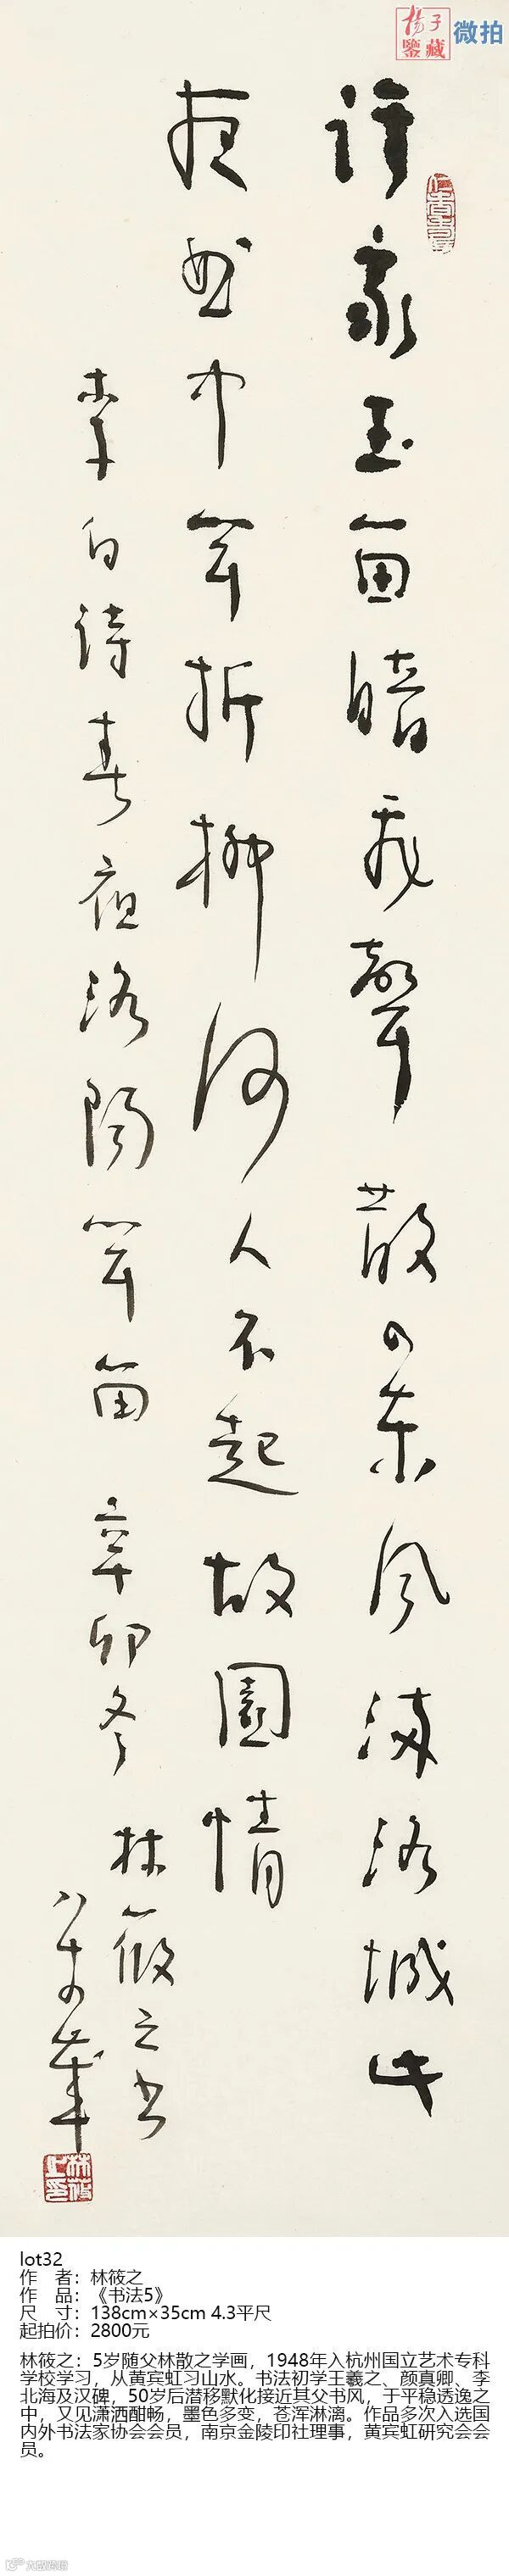 杨子
鉴藏
微拍
谁家玉笛暗飛聲散入東风满洛城此
夜曲中闻折柳何人不起故園情
李白诗春夜洛阳闻笛 辛卯冬 林筱之书
八十四歲
林筱之印
lot32
作 者：林筱之
作 品：《书法5》
尺 寸：138cm×35cm 4.3平尺
起拍价：2800元
林筱之：5岁随父林散之学画，1948年入杭州国立艺术专科
学校学习，从黄宾虹习山水。书法初学王羲之、颜真卿、李
北海及汉碑，50岁后潜移默化接近其父书风，于平稳透逸之
中，又见潇洒酣畅，墨色多变，苍浑淋漓。作品多次入选国
内外书法家协会会员，南京金陵印社理事，黄宾虹研究会会
员。